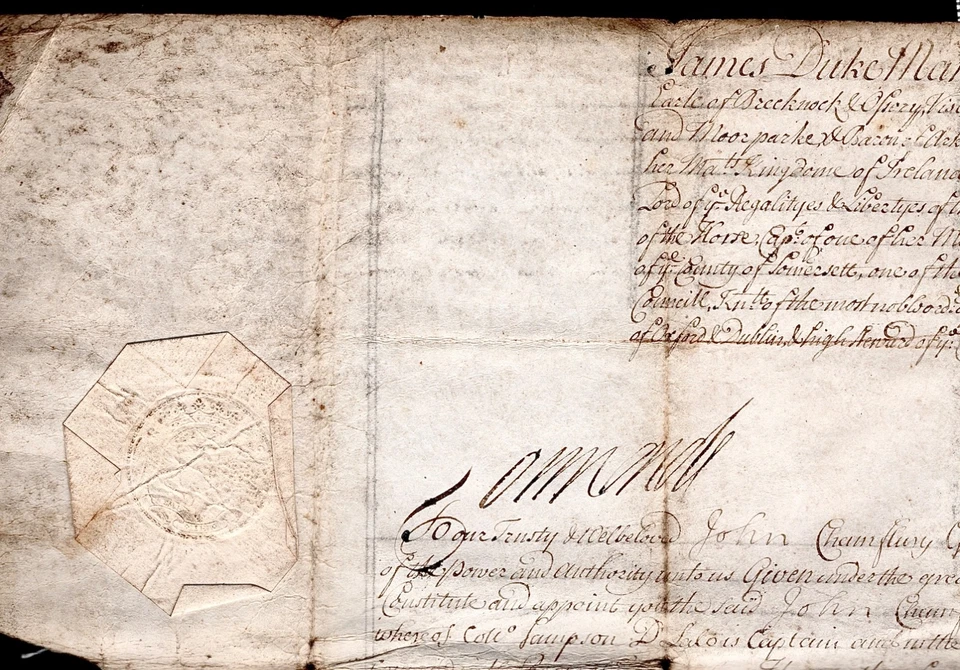 James Duke Mar
Earle of Brecknock & Ossory, Visc
and Moorparke & Baron of Ark
her Ma.tis Kingdome of Ireland
Lord of ye Regalityes & Libertyes of th
of the Horse, Capt. of one of her M
of ye County of Somersett, one of the
Councill, Knt. of the most noble ord
of Oxford & Dublin & high Steward of ye
Ormonde
To our Trusty & Welbeloved John
of the Power and Authority unto us Given under the grea
Constitute and appoint you the said John
whereof Coll.o Sampson D Lalo is Captain and in the